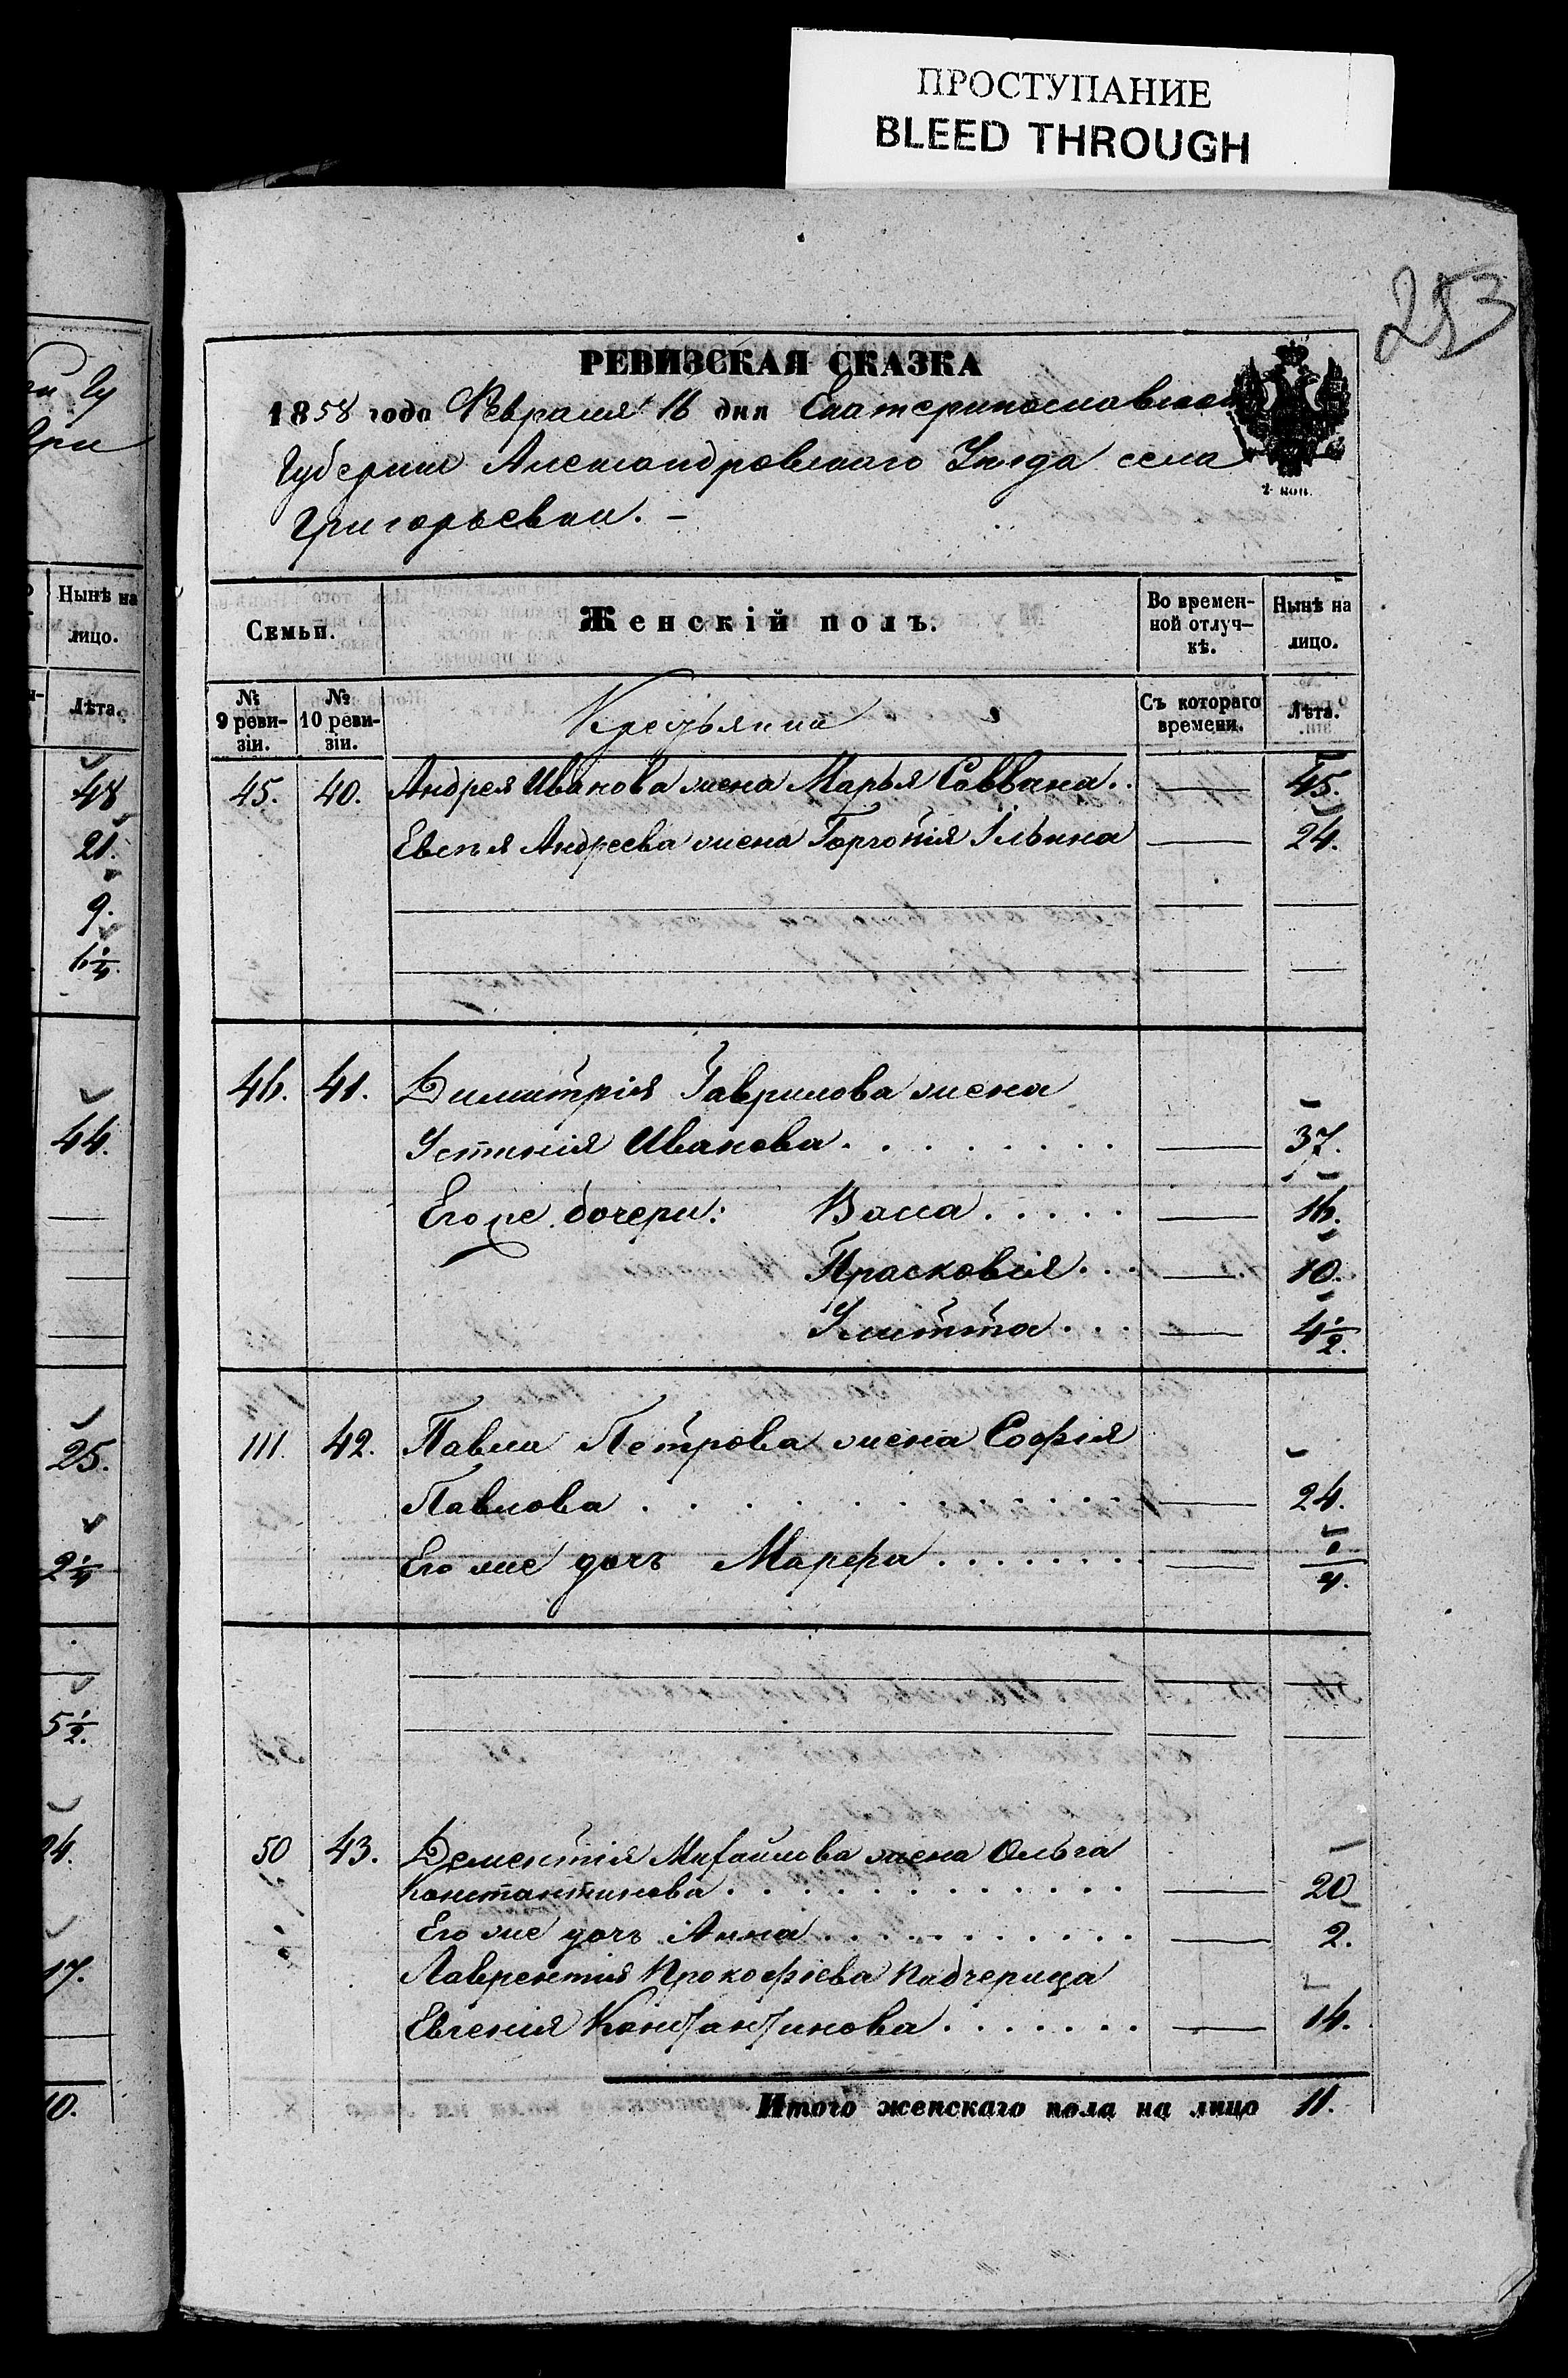 ПРОСТУПАНИЕ
BLEED THROUGH
253
РЕВИЗСКАЯ СКАЗКА
1858 года Февраля 16 дня Екатеринославской
Губернии Александровскаго Уезда села
Григорьевки. –
2 коп.
Семьи. Женскій полъ. Во времен-ной отлуч-кѣ. Нынѣ на лицо.
№ 9 реви-зіи. № 10 реви-зіи. Крестьянина Съ котораго времени. Лѣта.
45. 40. Андрея Иванова жена Марья Саввина.. — 45.
Евсѣя Андреева жена Горгонія Ільина — 24.
46. 41. Димитрія Гаврилова жена
Устинія Иванова . . . . . . . . — 37.
Его же дочери: Васса . . . . . — 16.
Прасковія . . . — 10.
Улитта . . . — 4 1/2.
111. 42. Павла Петрова жена Софія
Павлова . . . . . . . . . . . — 24.
Его же дочь Марфа . . . . . . . . — 1/4.
50 43. Дементія Михайлова жена Ольга
Константинова . . . . . . . . . . . — 20
Его же дочь Анна . . . . . . . . . . — 2.
Лаврентія Прокофіева Падчерица
Евгенія Константинова . . . . . . . — 14.
Итого женскаго пола на лицо 11.
Нынѣ на
лицо.
Лѣта.
48
21.
9.
44.
25.
2 1/4
5 1/2.
24.
17.
10.